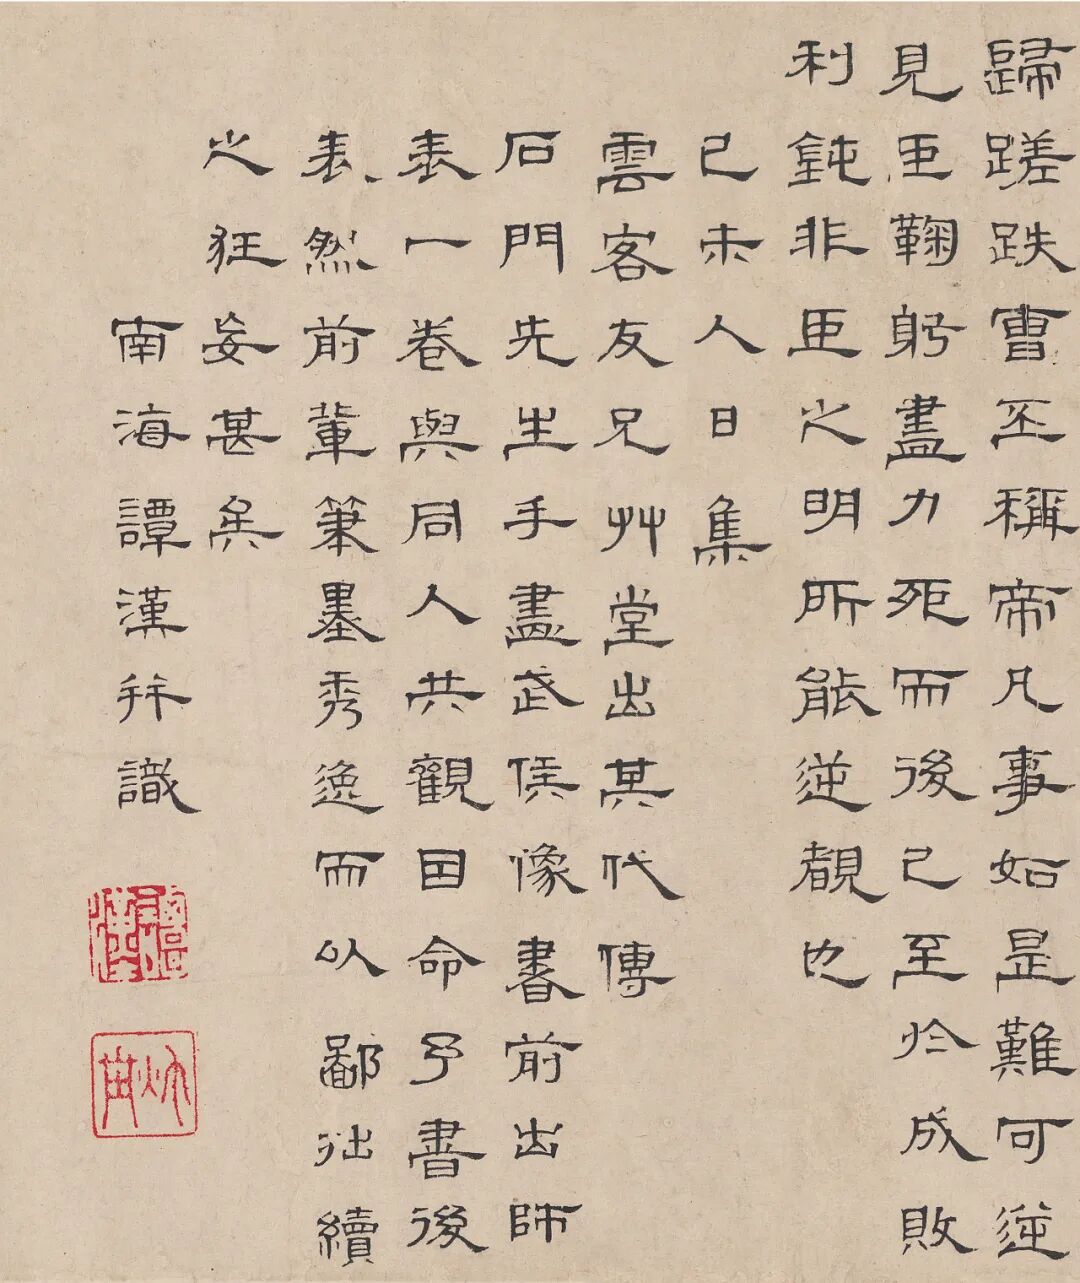 歸蹉跌曹丕稱帝凡事如是難可逆
見臣鞠躬盡力死而後已至於成敗
利鈍非臣之明所能逆覩也
己未人日集
雲客友兄艸堂出其代傳
石門先生手畫武侯像書前出師
表一卷與同人共觀因命予書後
表、然前輩筆墨秀逸而以鄙拙續
之狂妄甚矣
南海譚漢并識